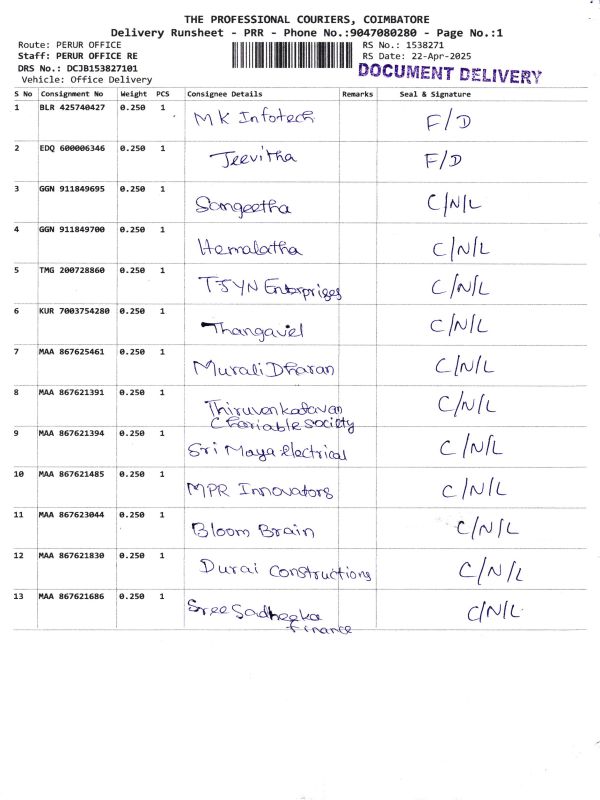 THE PROFESSIONAL COURIERS, COIMBATORE
Delivery Runsheet - PRR - Phone No.:9047080280 - Page No.:1
Route: PERUR OFFICE RS No.: 1538271
Staff: PERUR OFFICE RE RS Date: 22-Apr-2025
DRS No.: DCJB153827101 DOCUMENT DELIVERY
Vehicle: Office Delivery
S No Consignment No Weight PCS Consignee Details Remarks Seal & Signature
1 BLR 425740427 0.250 1 MK Infotech F/D
2 EDQ 600006346 0.250 1 Jeevitha F/D
3 GGN 911849695 0.250 1 Sangeetha C/N/L
4 GGN 911849700 0.250 1 Hemalatha C/N/L
5 TMG 200728860 0.250 1 TJYN Enterprises C/N/L
6 KUR 7003754280 0.250 1 Thangavel C/N/L
7 MAA 867625461 0.250 1 Murali Dharan C/N/L
8 MAA 867621391 0.250 1 Thiruvenkatavan C/N/L
Chariable Society
9 MAA 867621394 0.250 1 Sri Maya electrical C/N/L
10 MAA 867621485 0.250 1 MPR Innovators C/N/L
11 MAA 867623044 0.250 1 Bloom Brain C/N/L
12 MAA 867621830 0.250 1 Durai Constructions C/N/L
13 MAA 867621686 0.250 1 Sree Sadheeka C/N/L
finance